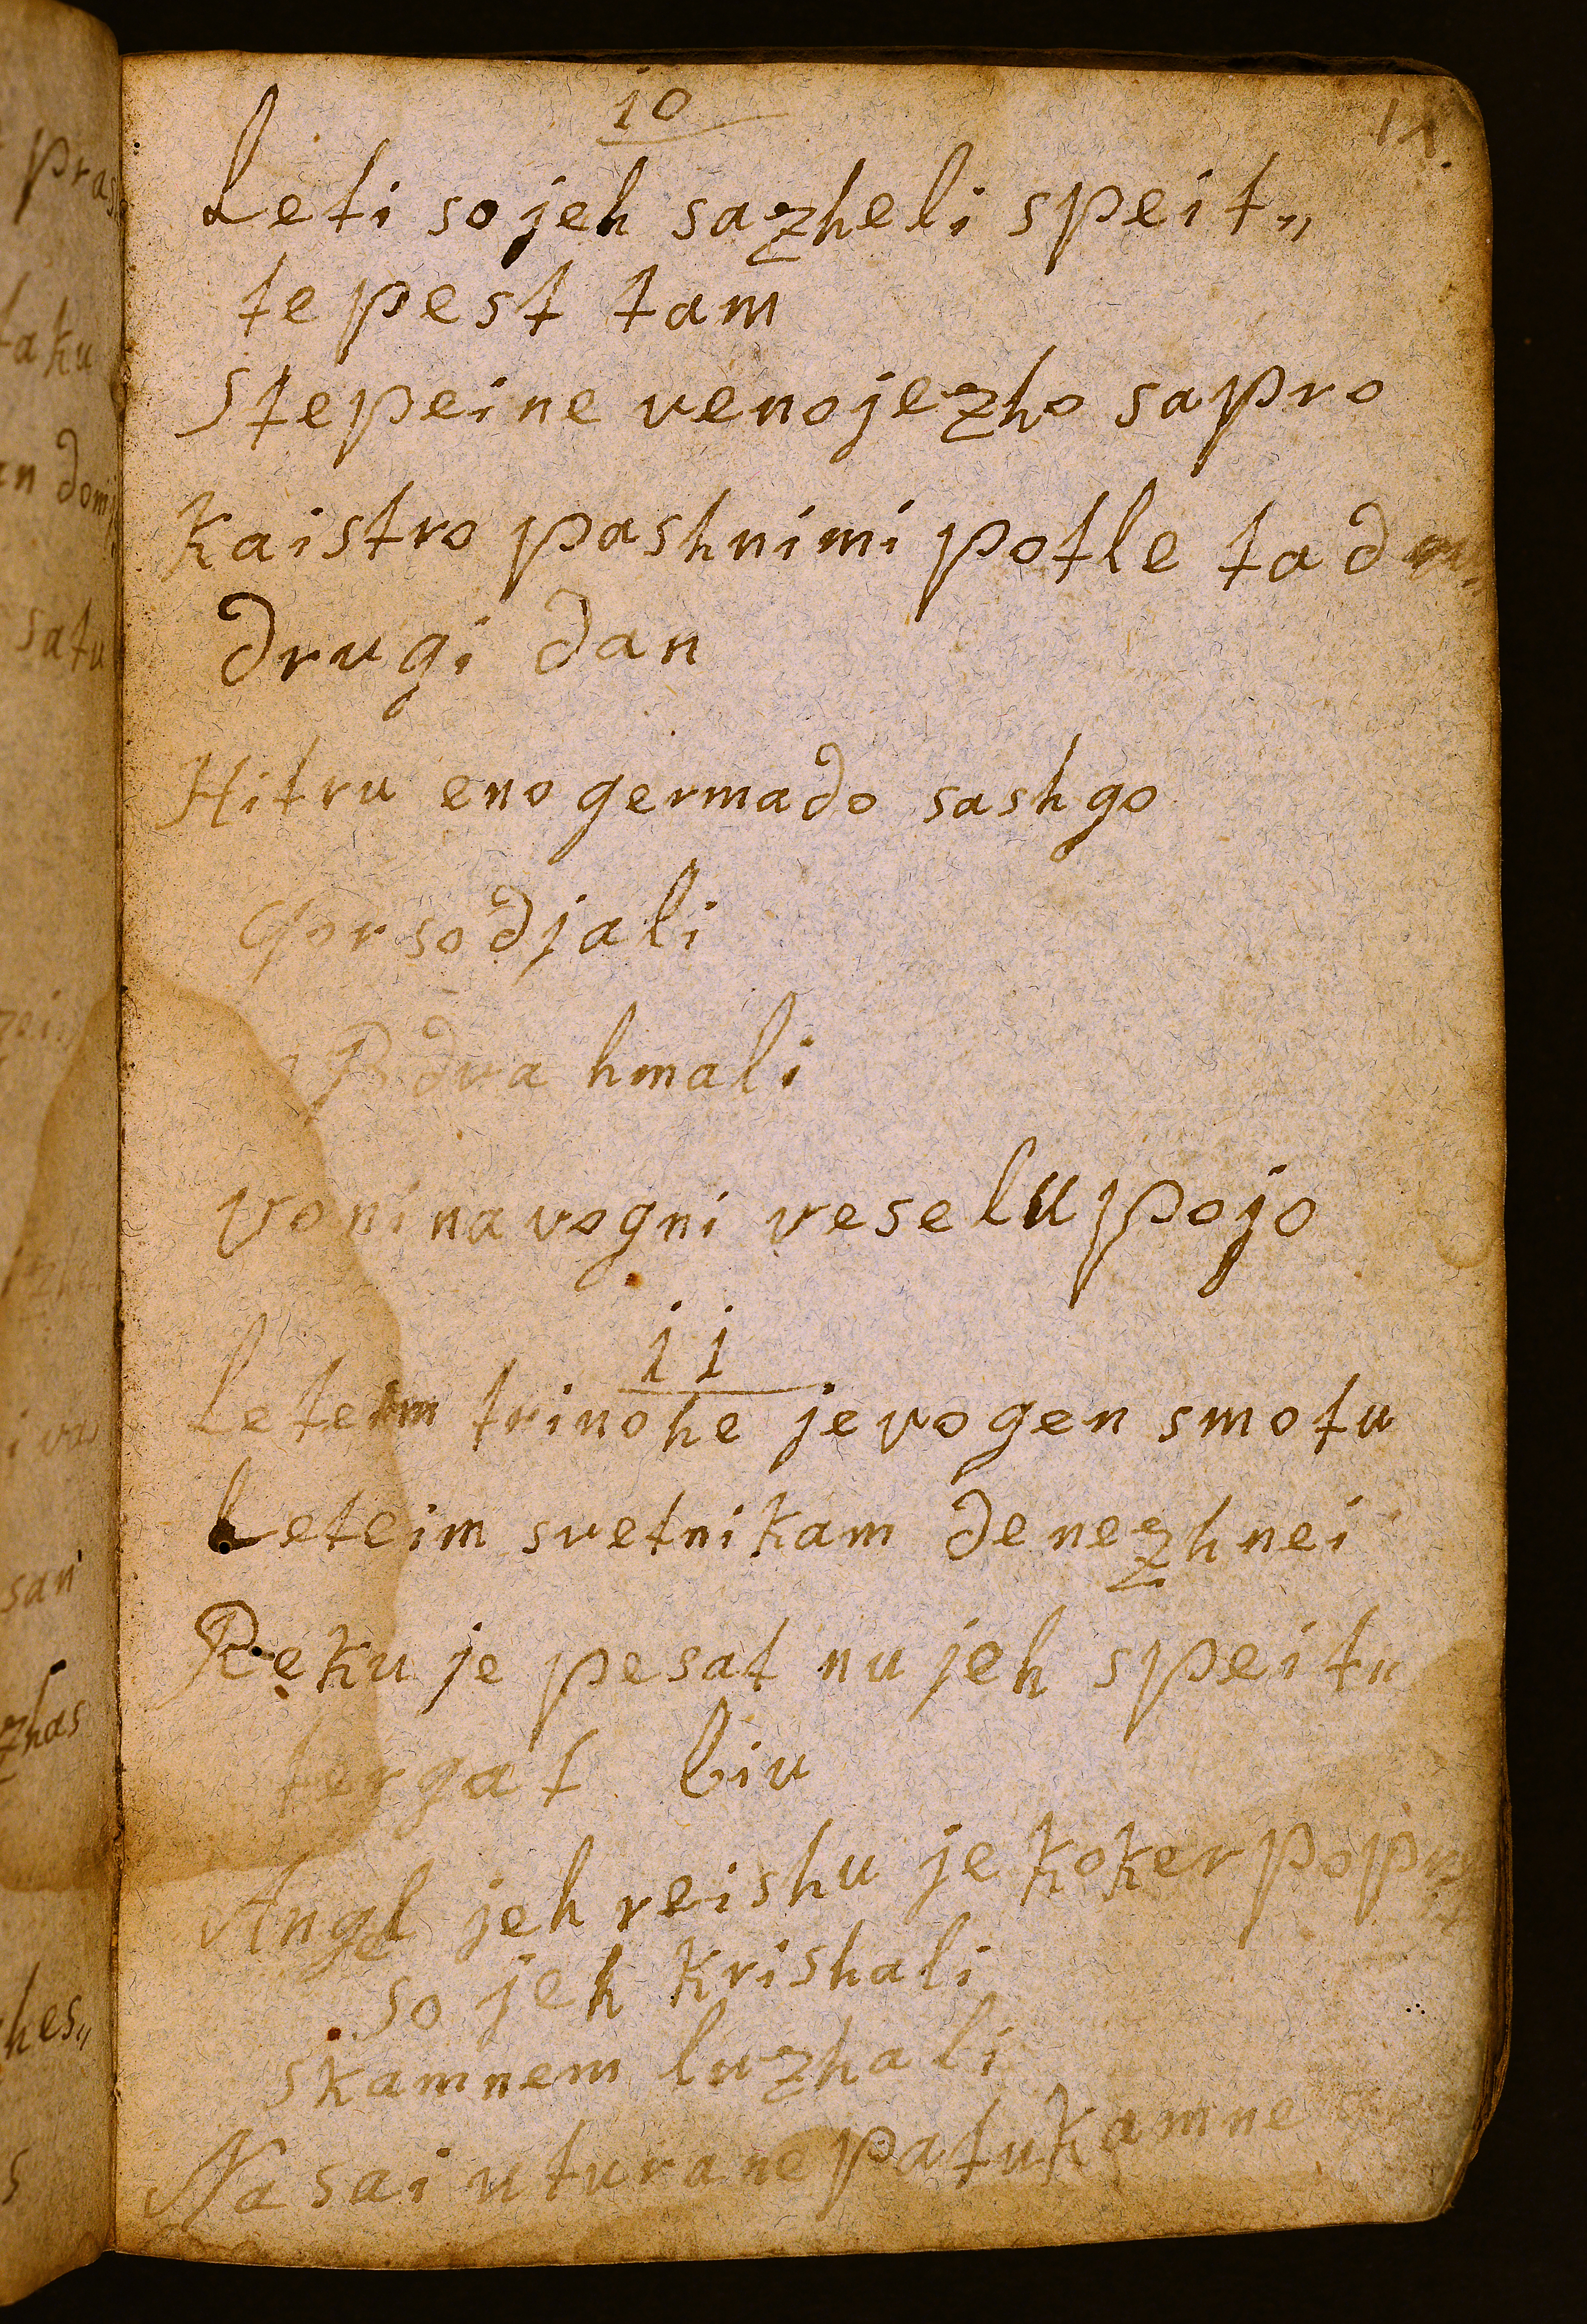 10
Leti so jeh sazheli speit„
te pest tam
Stepeine veno jezho sapro
Kaistro pashnimi potle ta d
drugi dan
Hitru eno germado sashgo
Gor so djali
dva hmali
voni na vogni veselu pojo
11
Leteim trinohe je vogen smotu
Leteim svetnikam de nezhnei
Reku je pesat nu jeh speit„
tergat biu
Angl jeh reishu je koker
so jeh krishali
skamnem luzhali
Na sai u tura ne patu kamne